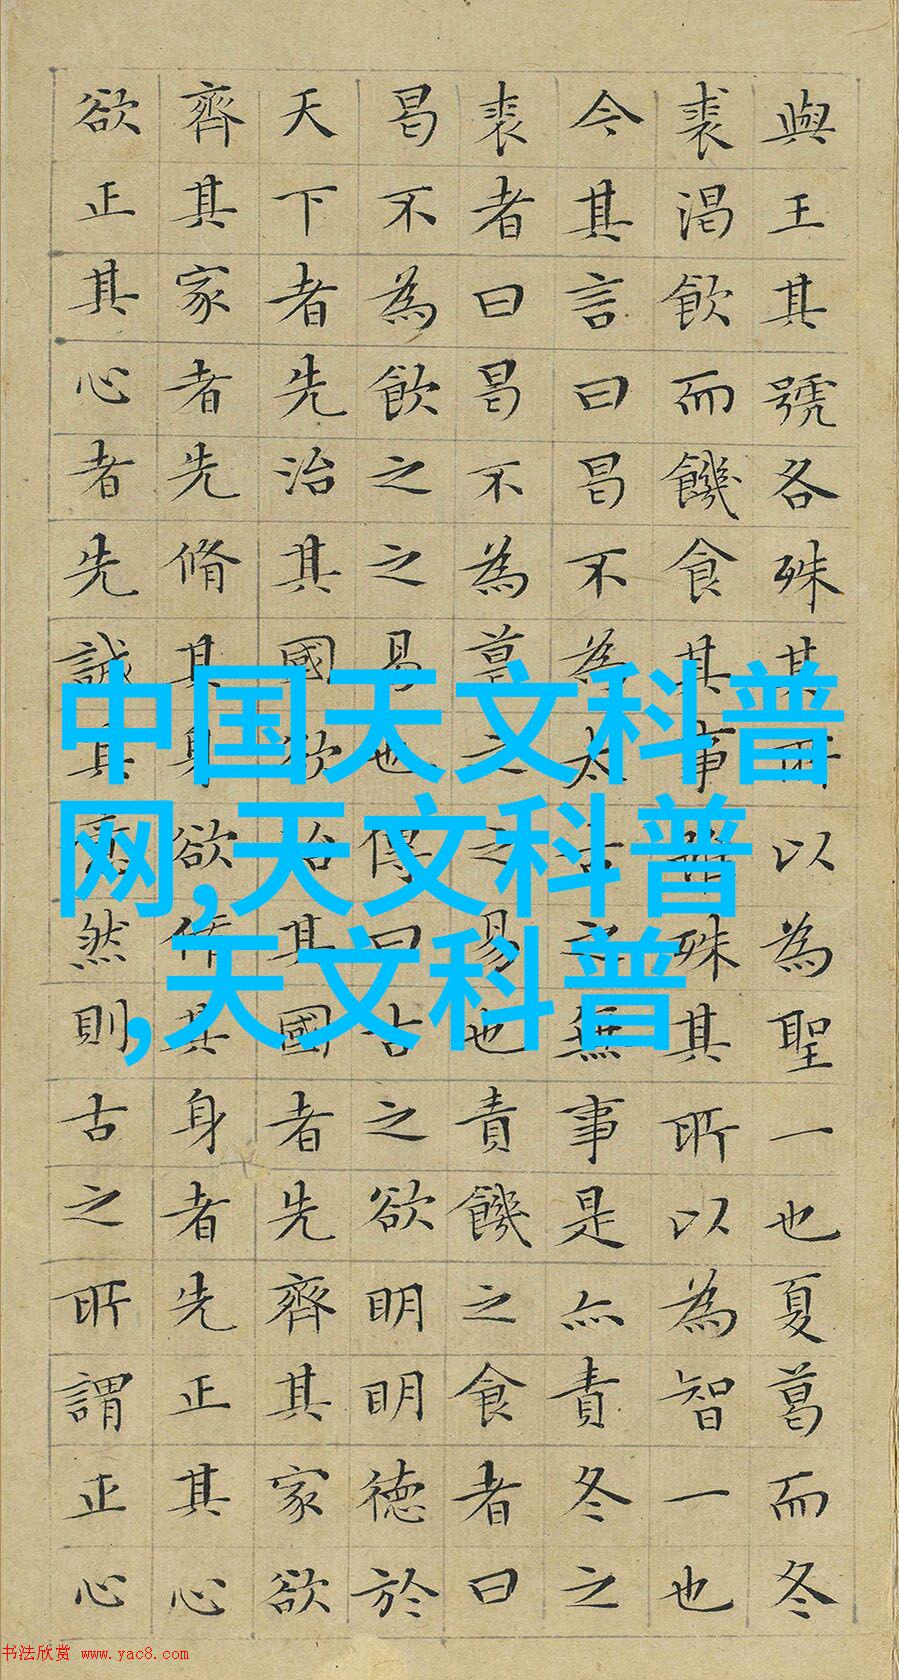 與王其號各殊其所以為聖一也夏葛而冬
裘渴飲而饑食其事殊其所以為智一也
今其言曰曷不為太古之無事是亦責冬之
裘者曰曷不為葛之之易也責饑之食者曰
曷不為飲之之易也傳曰古之欲明明德於
天下者先治其國欲治其國者先齊其家欲
齊其家者先脩其身欲脩其身者先正其心
欲正其心者先誠其意然則古之所謂正心
中国天文科普
网,天文科普
,天文科普
书法欣赏 www.yac8.com